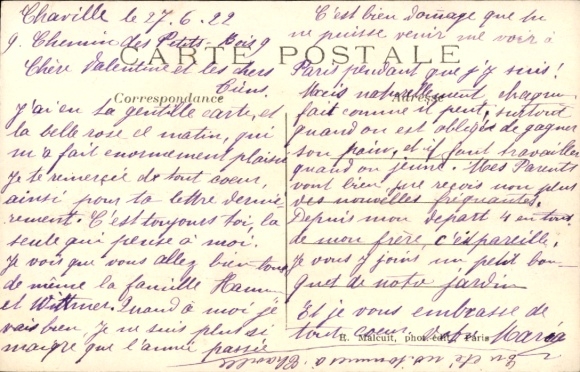 Chaville le 27.6.22
9. Chemin des Petits-Bois 9
CARTE POSTALE
Correspondance
Adresse
Chère Valentine et les chers
tiens.
J'ai eu ta gentille carte, et
la belle rose ce matin, qui
m'a fait enormement plaisir
Je te remercie de tout coeur,
ainsi pour ta lettre derniè-
rement. C'est toujours toi, la
seule qui pense à moi.
Je vois que vous allez bien tous
de même la famille
et Wittmer. Quand à moi je
vais bien, je ne suis plus si
maigre que l'année passée
C'est bien domage que tu
ne puisse venir me voir à
Paris pendant que j'y suis!
Mais naturellement chaqun
fait comme il peut, surtout
quand on est obligés de gagner
son pain, et il faut travailler
quand on jeune. Mes Parents
vont bien, je ne reçois non plus
des nouvelles fréquantes.
Depuis mon depart 4 en tout.
de mon frère, c'est pareille.
Je vous y joins un petit bou-
quet de notre jardin
Et je vous embrasse de
tout coeur votre Maria
E. Malcuit, phot.-édit., Paris
Chaville